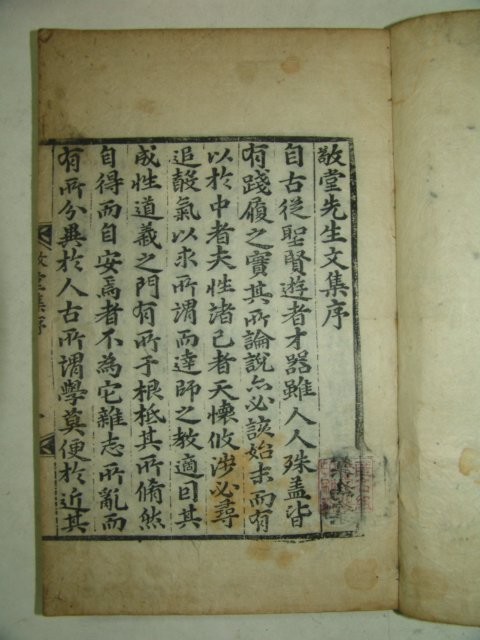 敬堂先生文集序
自古從聖賢遊者才器雖人人殊盖皆
有踐履之實其所論說亦必該始末而有
以於中者夫性諸己者天懷攸涉必尋
追馨氣以求所謂而達師之教適曰其
成性道義之門有所予根柢其所脩然
自得而自安焉者不為它雜志所亂而
有所分異於人古所謂學莫便於近其
敬堂集序